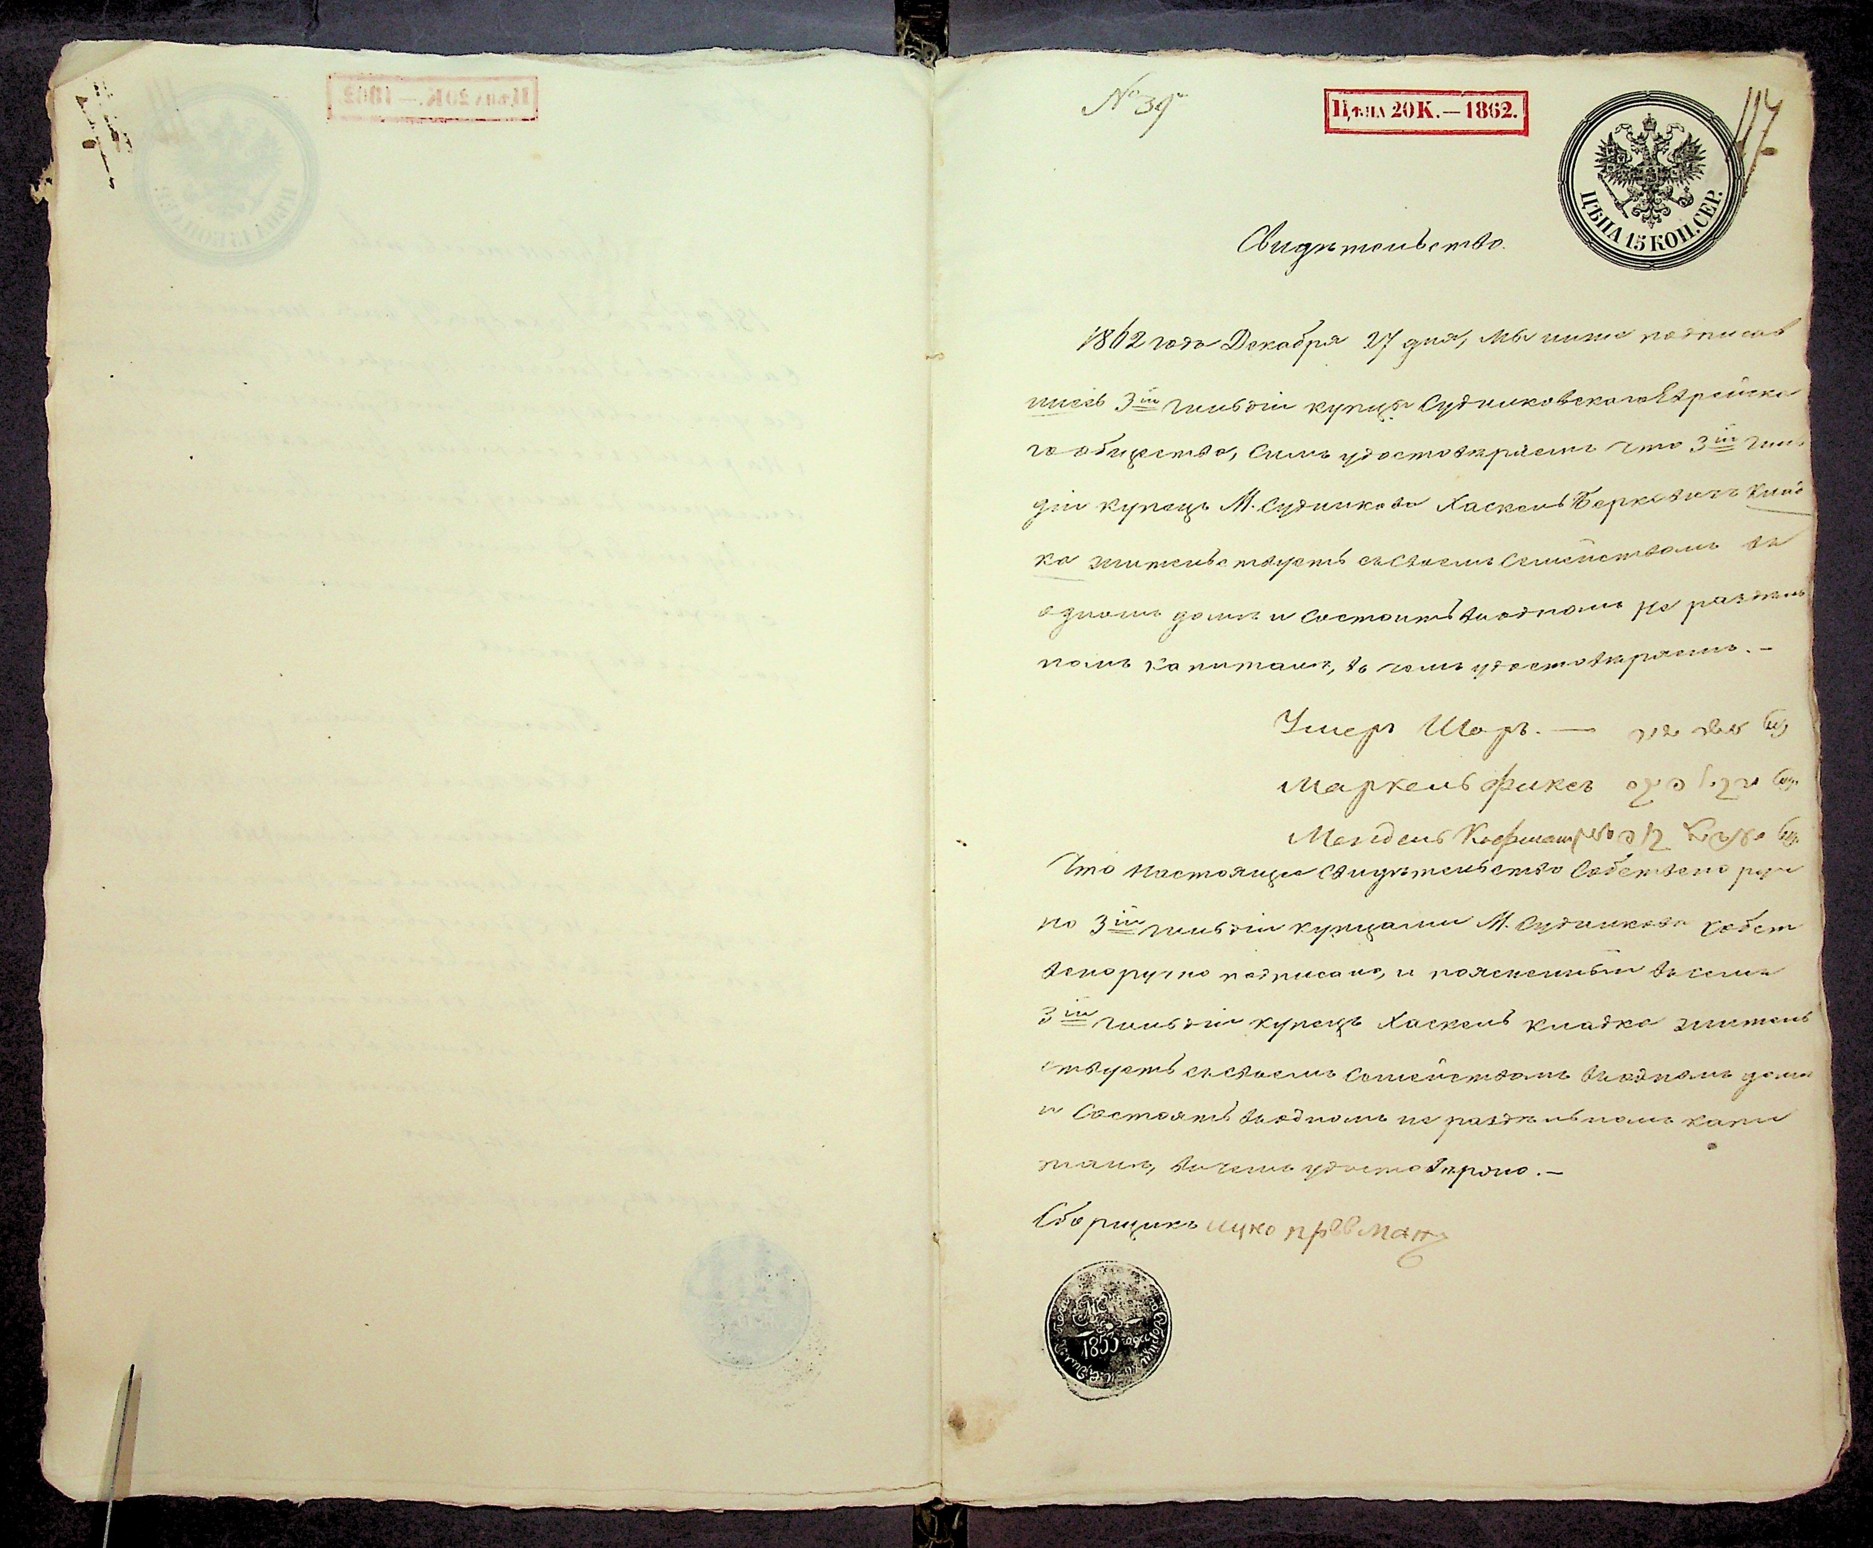 № 39
Цѣна 20 К. — 1862.
117
ЦѢНА 15 КОП. СЕР.
Свидѣтельство.
1862 года Декабря 27 дня, мы ниже подписав
шіесь 3ій гильдіи купцы Судилковскаго Еврейска
го общества, симъ удостовѣряемъ что 3ій гиль
діи купецъ М. Судилкова Хаскель Беркевичъ Клад
ка жительствуетъ съ своемъ семействомъ въ
одномъ домѣ и состоитъ въ одномъ не раздѣль
номъ капиталѣ, въ чемъ удостовѣряемъ. —
Умеръ Шоръ. —
Маркель Фиксъ
Мендель Кофман
Что настоящее свидѣтельство собствено руч
но 3ій гильдіи купцами М. Судилкова собст
веноручно подписано, и поясненный въ семъ
3ій гильдіи купецъ Хаскель Кладка житель
ствуетъ съ своемъ семействомъ въ одномъ домѣ
и состоятъ въ одномъ не раздѣльномъ капи
талѣ, въ чемъ удостовѣряю. —
Сборщикъ
1853